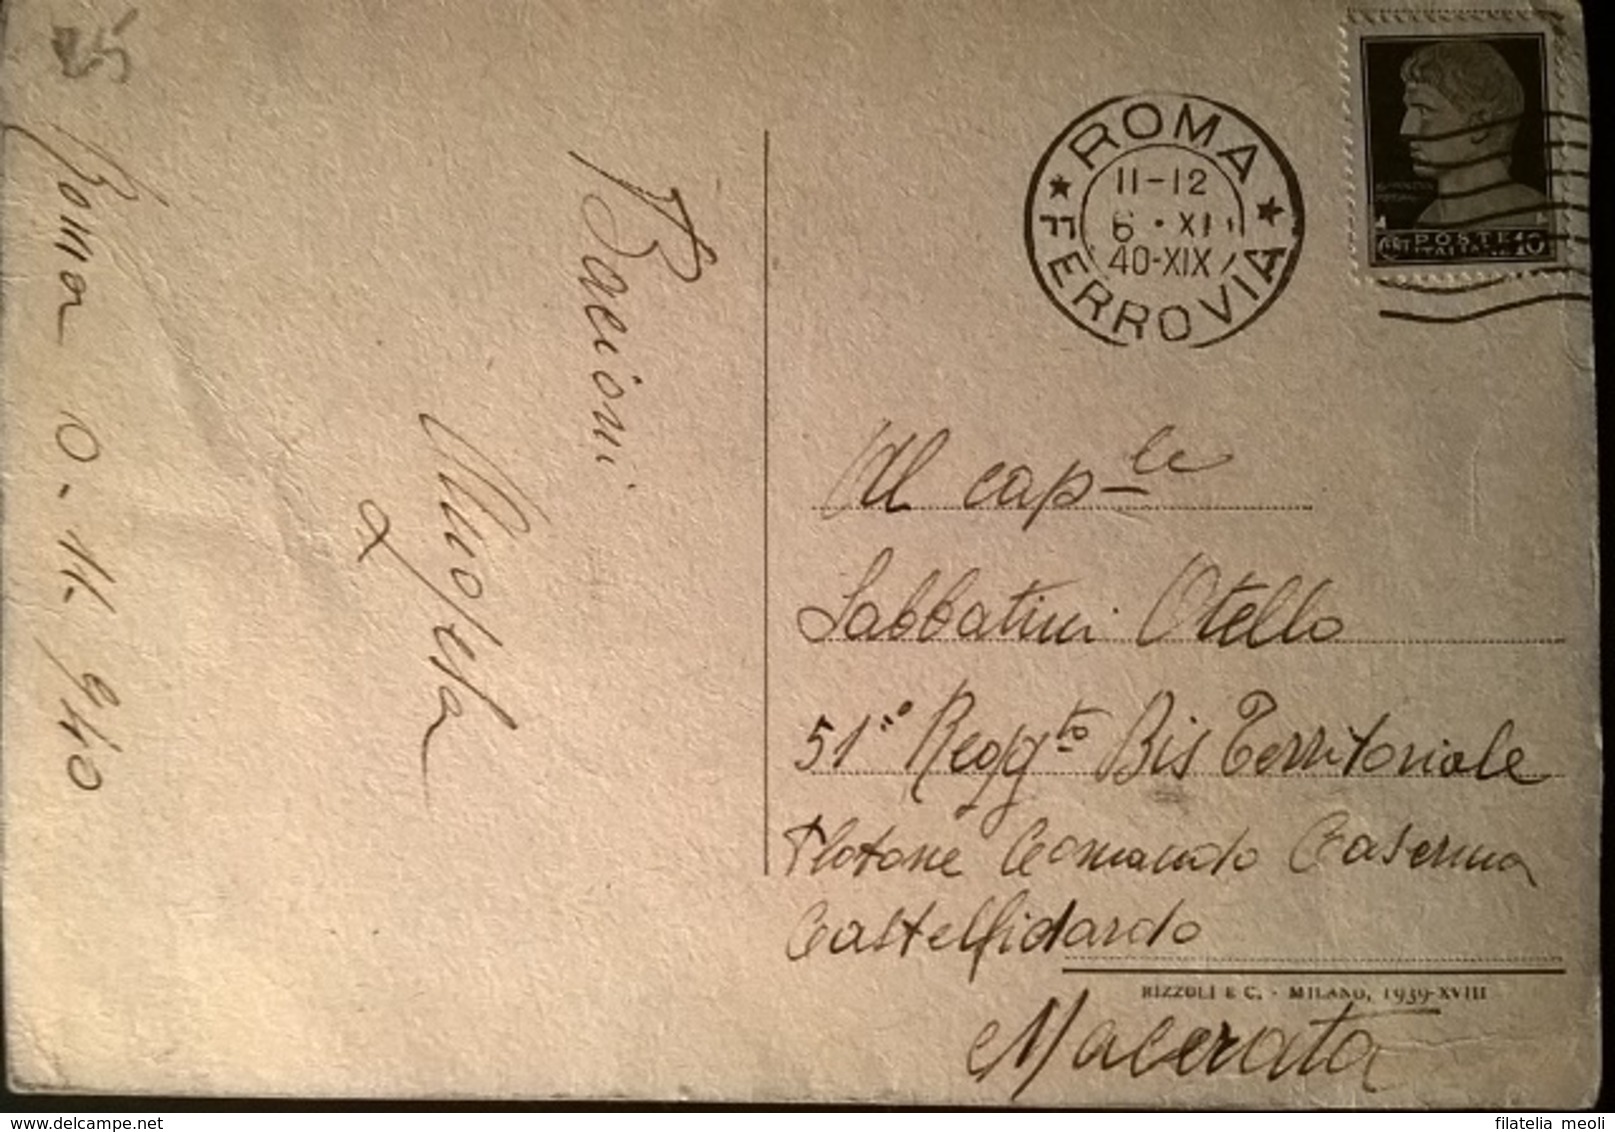 25
Roma 0-11-940
Bacioni
ROMA
FERROVIA
11-12
6 · XI
40-XIX
POSTE
10
Al cap.le
Sabbatini Otello
51° Regg.to Bis Territoriale
Plotone Comando Caserma
Castelfidardo
RIZZOLI & C. - MILANO, 1939-XVIII
Macerata
delcampe.net
filatelia meoli